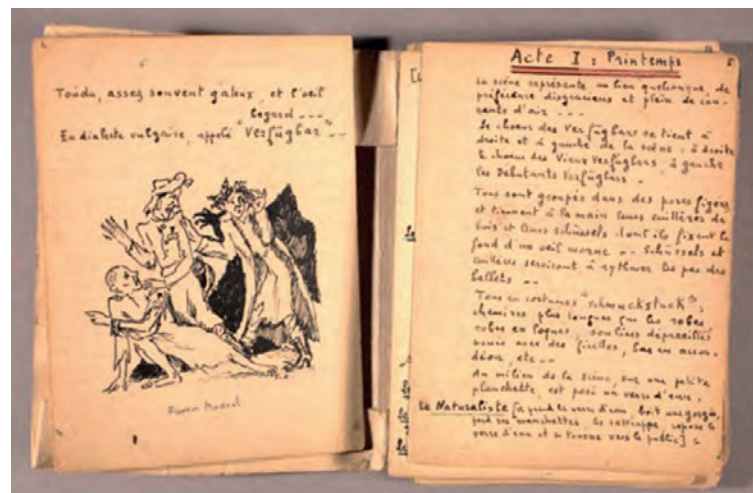 Tondu, assez souvent galeux, et l'oeil
hagard ----
En dialecte vulgaire, appelé "Verfügbar" --
Acte I : Printemps
5
La scène représente un lieu quelconque, de
préférence disgracieux et plein de cou-
rants d'air ---
Le choeur des Verfügbars se tient à
droite et à gauche de la scène : à droite
le choeur des Vieux Verfügbars, à gauche
les Débutants Verfügbars.
Tous sont groupés dans des poses figées
et tiennent à la main leurs cuillères de
bois et leurs schüssels dont ils fixent le
fond d'un oeil morne -- Schüssels et
cuillères serviront à rythmer les pas des
ballets --
Tous en costumes "schmuckstuck",
chemises plus longues que les robes,
robes en loques, souliers dépareillés
noués avec des ficelles, bas en accor-
déon, etc --
Au milieu de la scène, sur une petite
planchette, est posé un verre d'eau.
Le Naturaliste [a pris le verre d'eau, boit une gorgée,
perd ses manchettes, les rattrappe, repose le
verre d'eau et se tourne vers le public] :